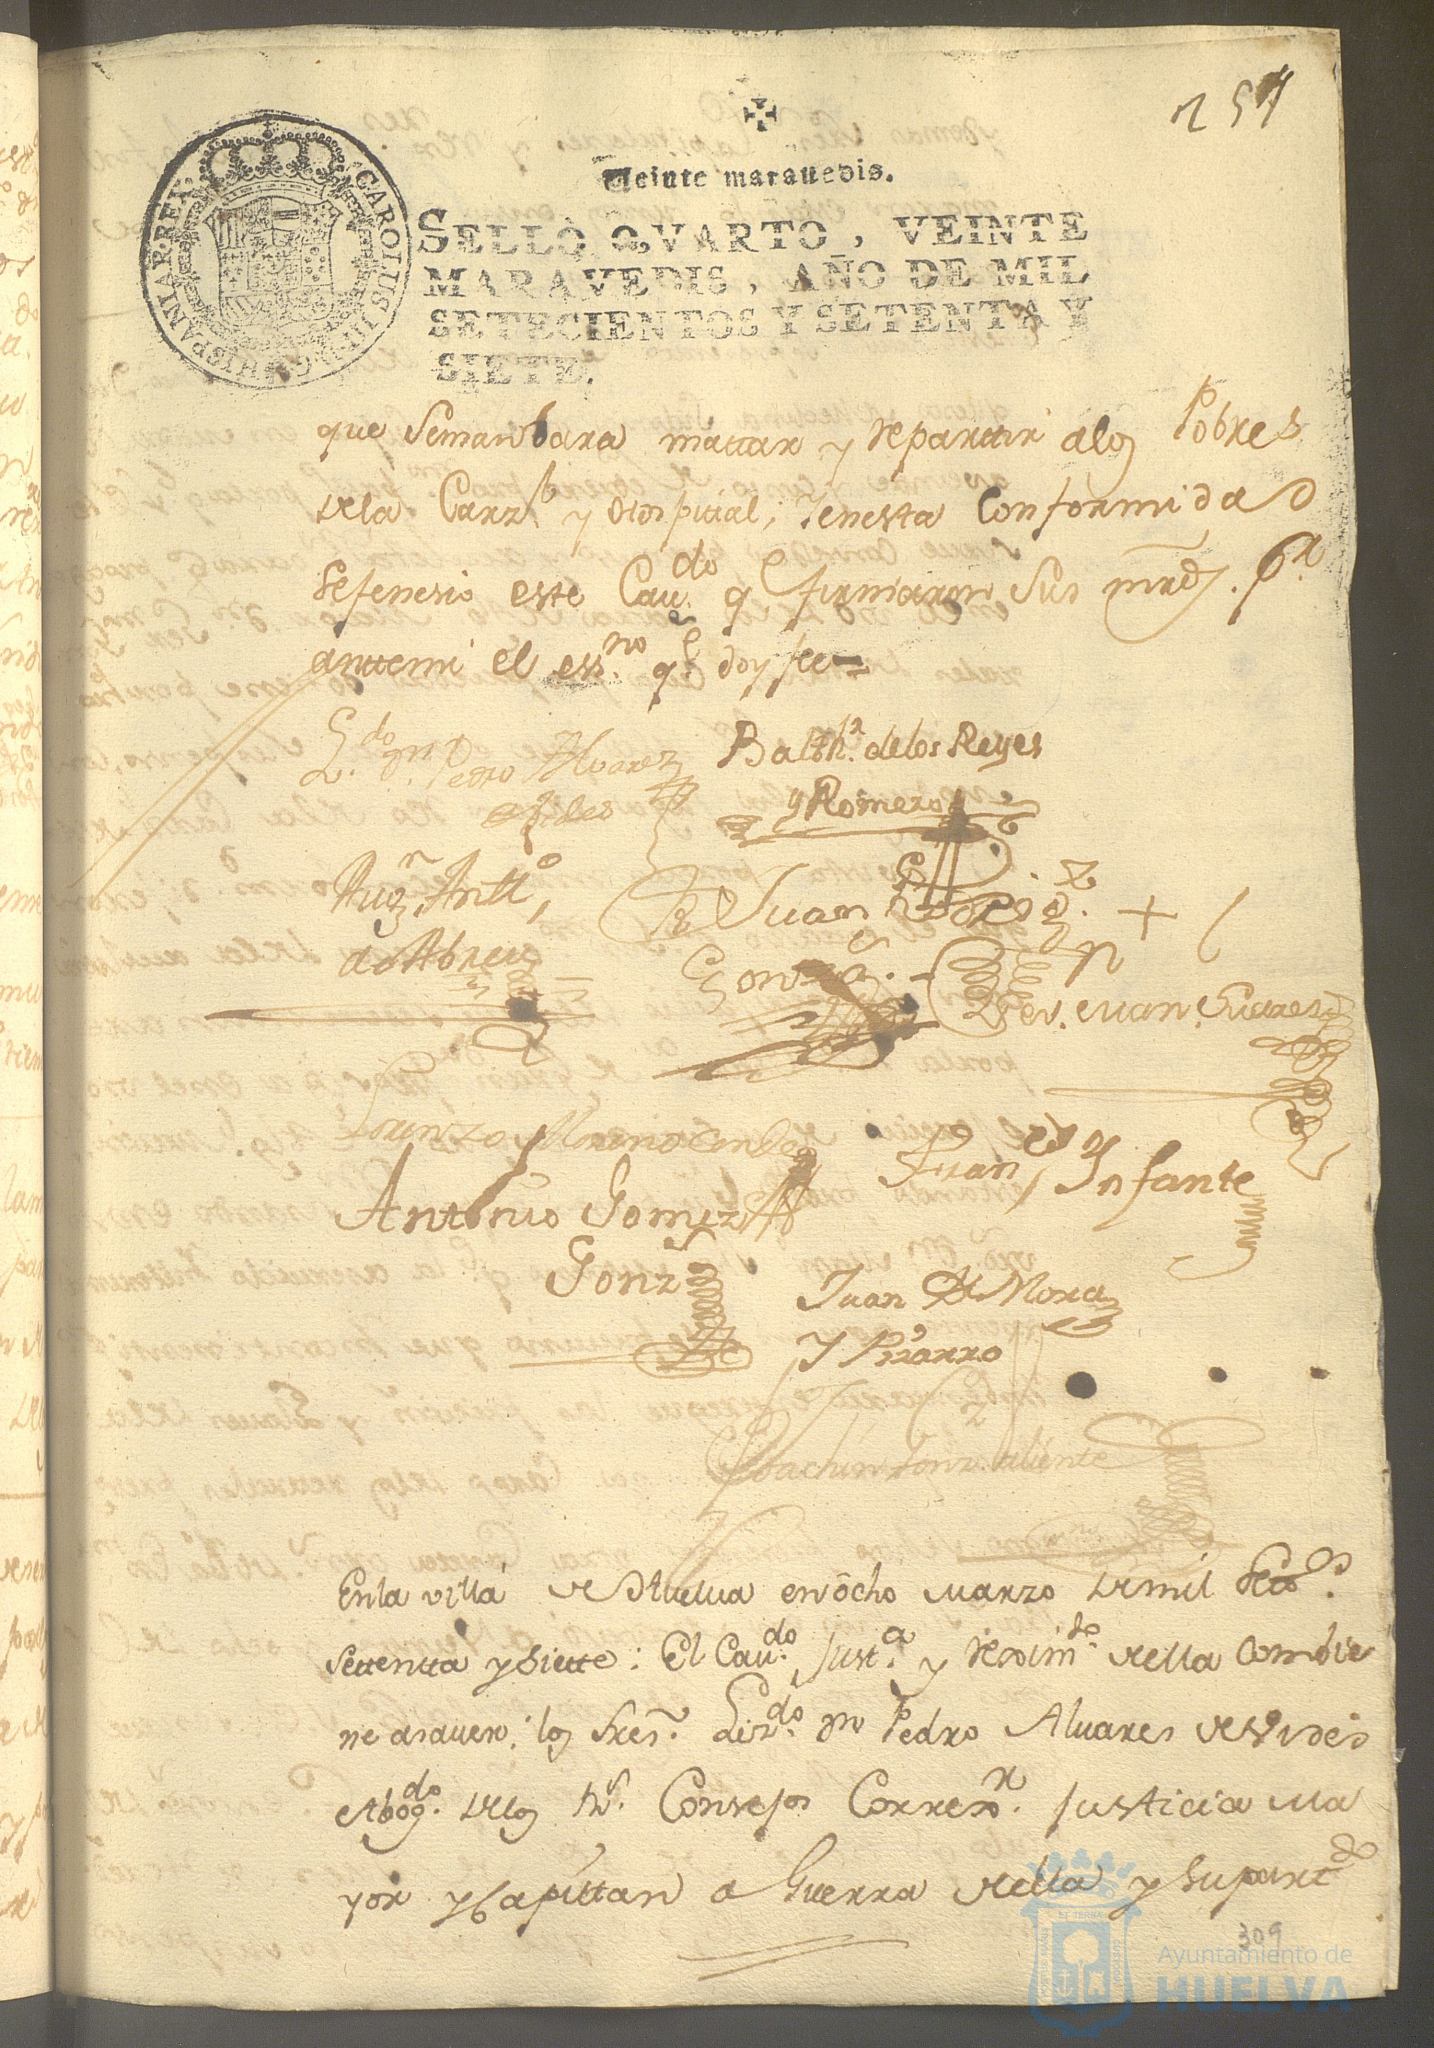 257
Veinte maravedis.
SELLO QVARTO, VEINTE
MARAVEDIS, AÑO DE MIL
SETECIENTOS Y SETENTA Y
SIETE.
CAROLUS III D G HISPANIAR REX
que Semandara mattar y repartir alos Pobres
dela Carzl y Ospicial, Yenesta Conformidad
sefenesio este Caudo q firmaron Sus mrds. Pr
anttemi el essno qe doy fee=
Ldo Dn Pedro Alvarez
Balthr. delos Reyes
y Romero
Augn Antto
de Abreu
Juan Rodrigz.
Gonza.
Juan Suares
Lorenzo y Moreno
Juan Infante
Antonio Gomez
Gonz
Juan De Mora
Y Pizarro
Joachin Gonz. Valiente
Enla villa de Huelva en ocho marzo demil setos.
settentta ysiette: El Caudo. Justa. y reximdo. della Combie
ne asaver; los Sres. Lizdo. Dn Pedro Alvares de Vides
Abogdo. delos Rs. Consejos Correxr. Justicia ma
yor y Capittan a Guerra della y Supartdo
309
Ayuntamiento de
HUELVA